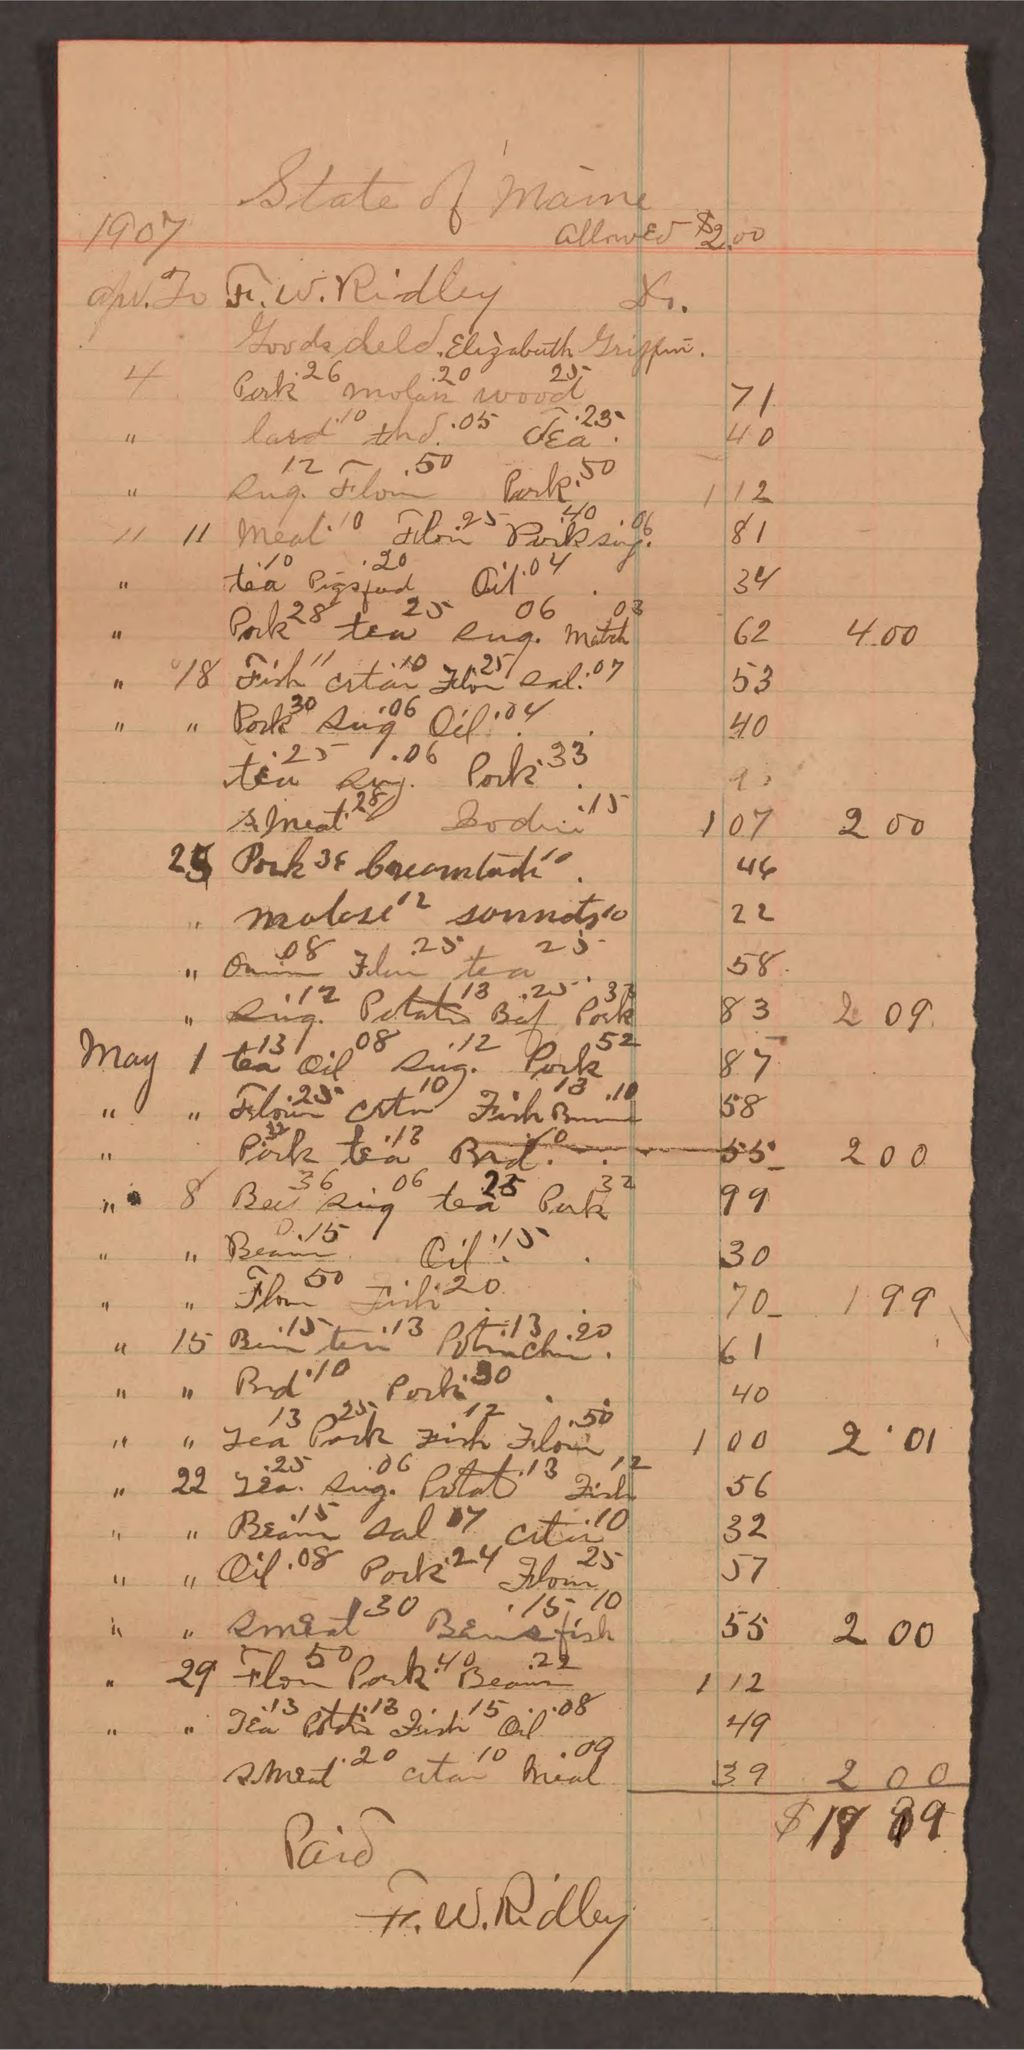 State of Maine
1907 allowed $2.00
apr. To F. W. Ridley Dr.
Goods deld. Elizabeth Griffin.
4 Pork .26 molass .20 wood 25 71
" lard .10 .05 Tea .25 40
" Sug. 12 Flour .50 Pork .50 1 12
" 11 Meal .10 Flour .25 Pork .40 sug. 06 81
" tea 10 Pigsfeed .20 Oil .04 34
" Pork 28 tea 25 sug. 06 Match 03 62 4.00
" 18 Fish 11 crtan .10 Flor 25 sal. .07 53
" " Pork 30 Sug .06 Oil .04 40
tea .25 sug. .06 Pork .33
S. Meat .28 .15 1 07 2 00
25 Pork 36 10 46
" molase 12 10 22
" Onion .08 Flour .25 tea 25 58
" Sug. .12 Potatos 13 Bef .25 Pork 33 83 2 09
May 1 tea 13 Oil 08 Sug. .12 Pork 52 87
" " Flour .25 crtn 10 Fish 13 .10 58
" Pork 32 tea .13 Brd. 10 55 2 00
" 8 Bee 36 sug 06 tea 25 Pork 32 99
" " Beans .15 Oil .15 30
" " Flour 50 Fish 20 70 1 99
" 15 .15 tea .13 .13 .20 61
" " Brd .10 Pork 30 40
" " Tea 13 Pork 25 Fish 12 Flour .50 1 00 2.01
" 22 Tea. .25 Sug. .06 Potat .13 Fish 12 56
" " Beans .15 sal 07 crtn .10 32
" " Oil .08 Pork .24 Flour 25 57
" " Smeat 30 Beans .15 fish 10 55 2 00
" 29 Flour 50 Pork .40 Beans .22 1 12
" " Tea .13 Potts .13 Fish 15 Oil .08 49
S. Meat .20 crtan 10 Meal .09 39 2 00
$18 89
Paid
F. W. Ridley